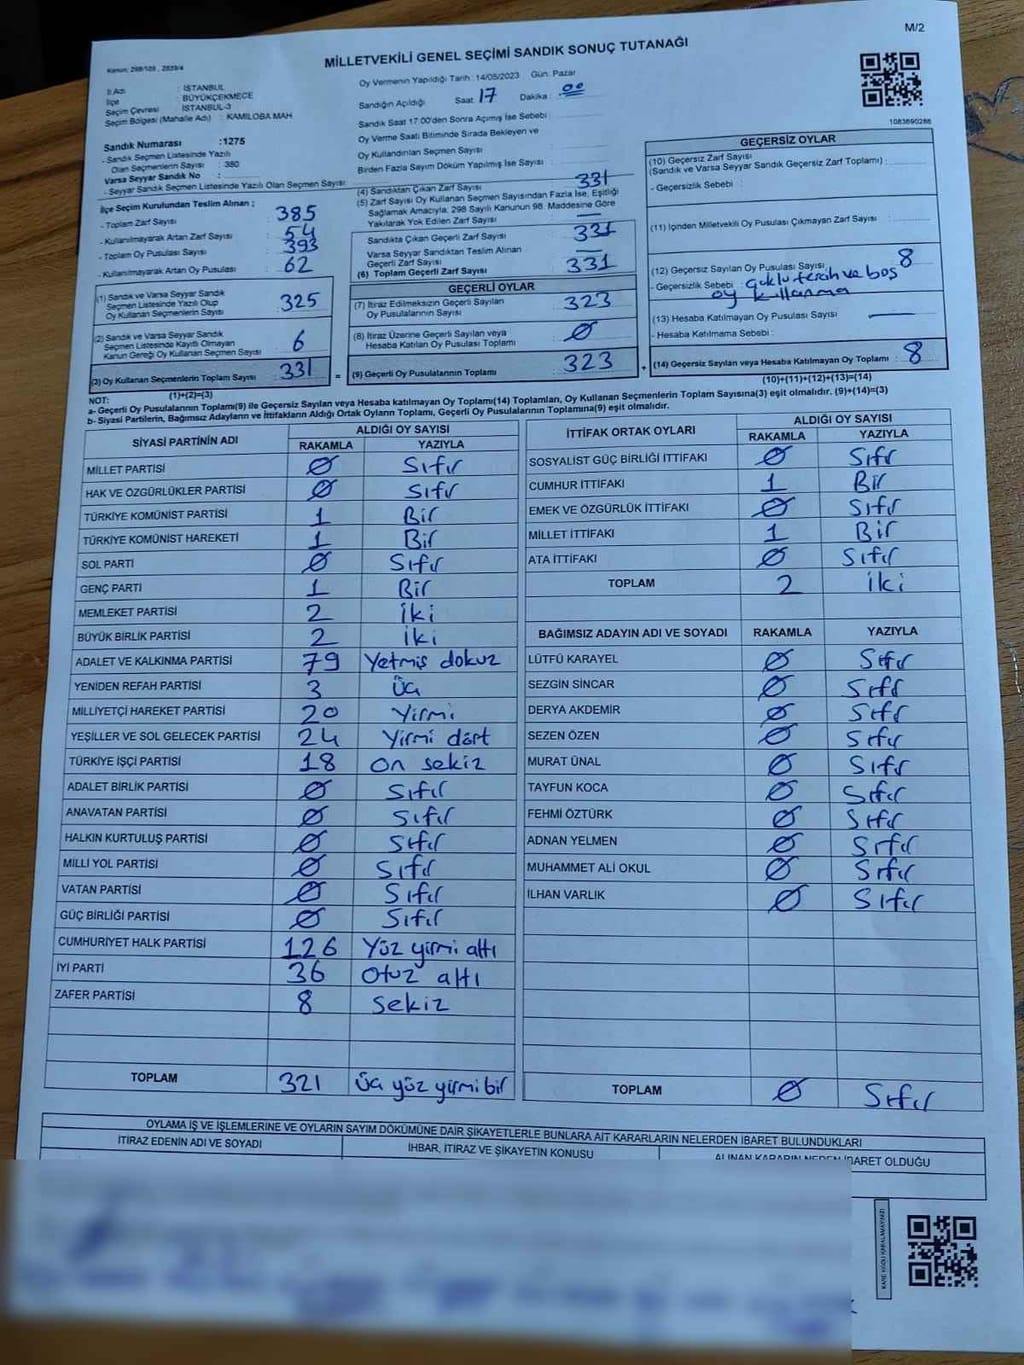 M/2
MİLLETVEKİLİ GENEL SEÇİMİ SANDIK SONUÇ TUTANAĞI
İl Adı : İSTANBUL
İlçe : BÜYÜKÇEKMECE
Seçim Çevresi : İSTANBUL-3
Seçim Bölgesi (Mahalle Adı) : KAMİLOBA MAH
Sandık Numarası :1275
- Sandık Seçmen Listesinde Yazılı
Olan Seçmenlerin Sayısı : 380
Varsa Seyyar Sandık No :
- Seyyar Sandık Seçmen Listesinde Yazılı Olan Seçmen Sayısı:
İlçe Seçim Kurulundan Teslim Alınan ;
- Toplam Zarf Sayısı : 385
- Kullanılmayarak Artan Zarf Sayısı : 54
- Toplam Oy Pusulası Sayısı : 393
- Kullanılmayarak Artan Oy Pusulası : 62
(1) Sandık ve Varsa Seyyar Sandık
Seçmen Listesinde Yazılı Olup
Oy Kullanan Seçmenlerin Sayısı : 325
(2) Sandık ve Varsa Seyyar Sandık
Seçmen Listesinde Kayıtlı Olmayan
Kanun Gereği Oy Kullanan Seçmen Sayısı : 6
(3) Oy Kullanan Seçmenlerin Toplam Sayısı : 331 =
(1)+(2)=(3)
Oy Vermenin Yapıldığı Tarih : 14/05/2023 Gün: Pazar
Sandığın Açıldığı Saat: 17 Dakika : 00
Sandık Saat 17.00'den Sonra Açımış İse Sebebi :
Oy Verme Saati Bitiminde Sırada Bekleyen ve
Oy Kullandırılan Seçmen Sayısı :
Birden Fazla Sayım Döküm Yapılmış İse Sayısı :
(4) Sandıktan Çıkan Zarf Sayısı : 331
(5) Zarf Sayısı Oy Kullanan Seçmen Sayısından Fazla İse, Eşitliği
Sağlamak Amacıyla, 298 Sayılı Kanunun 98. Maddesine Göre
Yakılarak Yok Edilen Zarf Sayısı : —
Sandıkta Çıkan Geçerli Zarf Sayısı : 331
Varsa Seyyar Sandıktan Teslim Alınan
Geçerli Zarf Sayısı : —
(6) Toplam Geçerli Zarf Sayısı : 331
GEÇERLİ OYLAR
(7) İtiraz Edilmeksizin Geçerli Sayılan
Oy Pusulalarının Sayısı : 323
(8) İtiraz Üzerine Geçerli Sayılan veya
Hesaba Katılan Oy Pusulası Toplamı : Ø
(9) Geçerli Oy Pusulalarının Toplamı : 323 +
1083690286
GEÇERSİZ OYLAR
(10) Geçersiz Zarf Sayısı
(Sandık ve Varsa Seyyar Sandık Geçersiz Zarf Toplamı) :
- Geçersizlik Sebebi :
(11) İçinden Milletvekili Oy Pusulası Çıkmayan Zarf Sayısı :
(12) Geçersiz Sayılan Oy Pusulası Sayısı : 8
- Geçersizlik Sebebi : çoklu tercih ve boş
oy kullanma
(13) Hesaba Katılmayan Oy Pusulası Sayısı : —
- Hesaba Katılmama Sebebi :
(14) Geçersiz Sayılan veya Hesaba Katılmayan Oy Toplamı : 8
(10)+(11)+(12)+(13)=(14)
NOT:
a- Geçerli Oy Pusulalarının Toplamı(9) ile Geçersiz Sayılan veya Hesaba katılmayan Oy Toplamı(14) Toplamları, Oy Kullanan Seçmenlerin Toplam Sayısına(3) eşit olmalıdır. (9)+(14)=(3)
b- Siyasi Partilerin, Bağımsız Adayların ve İttifakların Aldığı Ortak Oyların Toplamı, Geçerli Oy Pusulalarının Toplamına(9) eşit olmalıdır.
SİYASİ PARTİNİN ADI ALDIĞI OY SAYISI
RAKAMLA YAZIYLA
MİLLET PARTİSİ Ø Sıfır
HAK VE ÖZGÜRLÜKLER PARTİSİ Ø Sıfır
TÜRKİYE KOMÜNİST PARTİSİ 1 Bir
TÜRKİYE KOMÜNİST HAREKETİ 1 Bir
SOL PARTİ Ø Sıfır
GENÇ PARTİ 1 Bir
MEMLEKET PARTİSİ 2 İki
BÜYÜK BİRLİK PARTİSİ 2 İki
ADALET VE KALKINMA PARTİSİ 79 Yetmiş dokuz
YENİDEN REFAH PARTİSİ 3 Üç
MİLLİYETÇİ HAREKET PARTİSİ 20 Yirmi
YEŞİLLER VE SOL GELECEK PARTİSİ 24 Yirmi dört
TÜRKİYE İŞÇİ PARTİSİ 18 on sekiz
ADALET BİRLİK PARTİSİ Ø Sıfır
ANAVATAN PARTİSİ Ø Sıfır
HALKIN KURTULUŞ PARTİSİ Ø Sıfır
MİLLİ YOL PARTİSİ Ø Sıfır
VATAN PARTİSİ Ø Sıfır
GÜÇ BİRLİĞİ PARTİSİ Ø Sıfır
CUMHURİYET HALK PARTİSİ 126 Yüz yirmi altı
İYİ PARTİ 36 Otuz altı
ZAFER PARTİSİ 8 Sekiz
TOPLAM 321 Üç yüz yirmi bir
İTTİFAK ORTAK OYLARI ALDIĞI OY SAYISI
RAKAMLA YAZIYLA
SOSYALİST GÜÇ BİRLİĞİ İTTİFAKI Ø Sıfır
CUMHUR İTTİFAKI 1 Bir
EMEK VE ÖZGÜRLÜK İTTİFAKI Ø Sıfır
MİLLET İTTİFAKI 1 Bir
ATA İTTİFAKI Ø Sıfır
TOPLAM 2 İki
BAĞIMSIZ ADAYIN ADI VE SOYADI RAKAMLA YAZIYLA
LÜTFÜ KARAYEL Ø Sıfır
SEZGİN SİNCAR Ø Sıfır
DERYA AKDEMİR Ø Sıfır
SEZEN ÖZEN Ø Sıfır
MURAT ÜNAL Ø Sıfır
TAYFUN KOCA Ø Sıfır
FEHMİ ÖZTÜRK Ø Sıfır
ADNAN YELMEN Ø Sıfır
MUHAMMET ALİ OKUL Ø Sıfır
İLHAN VARLIK Ø Sıfır
TOPLAM Ø Sıfır
OYLAMA İŞ VE İŞLEMLERİNE VE OYLARIN SAYIM DÖKÜMÜNE DAİR ŞİKAYETLERLE BUNLARA AİT KARARLARIN NELERDEN İBARET BULUNDUKLARI
İTİRAZ EDENİN ADI VE SOYADI
İHBAR, İTİRAZ VE ŞİKAYETİN KONUSU
ALINAN KARARIN NEDEN İBARET OLDUĞU
KARE KODU KARALAMAYINIZ!